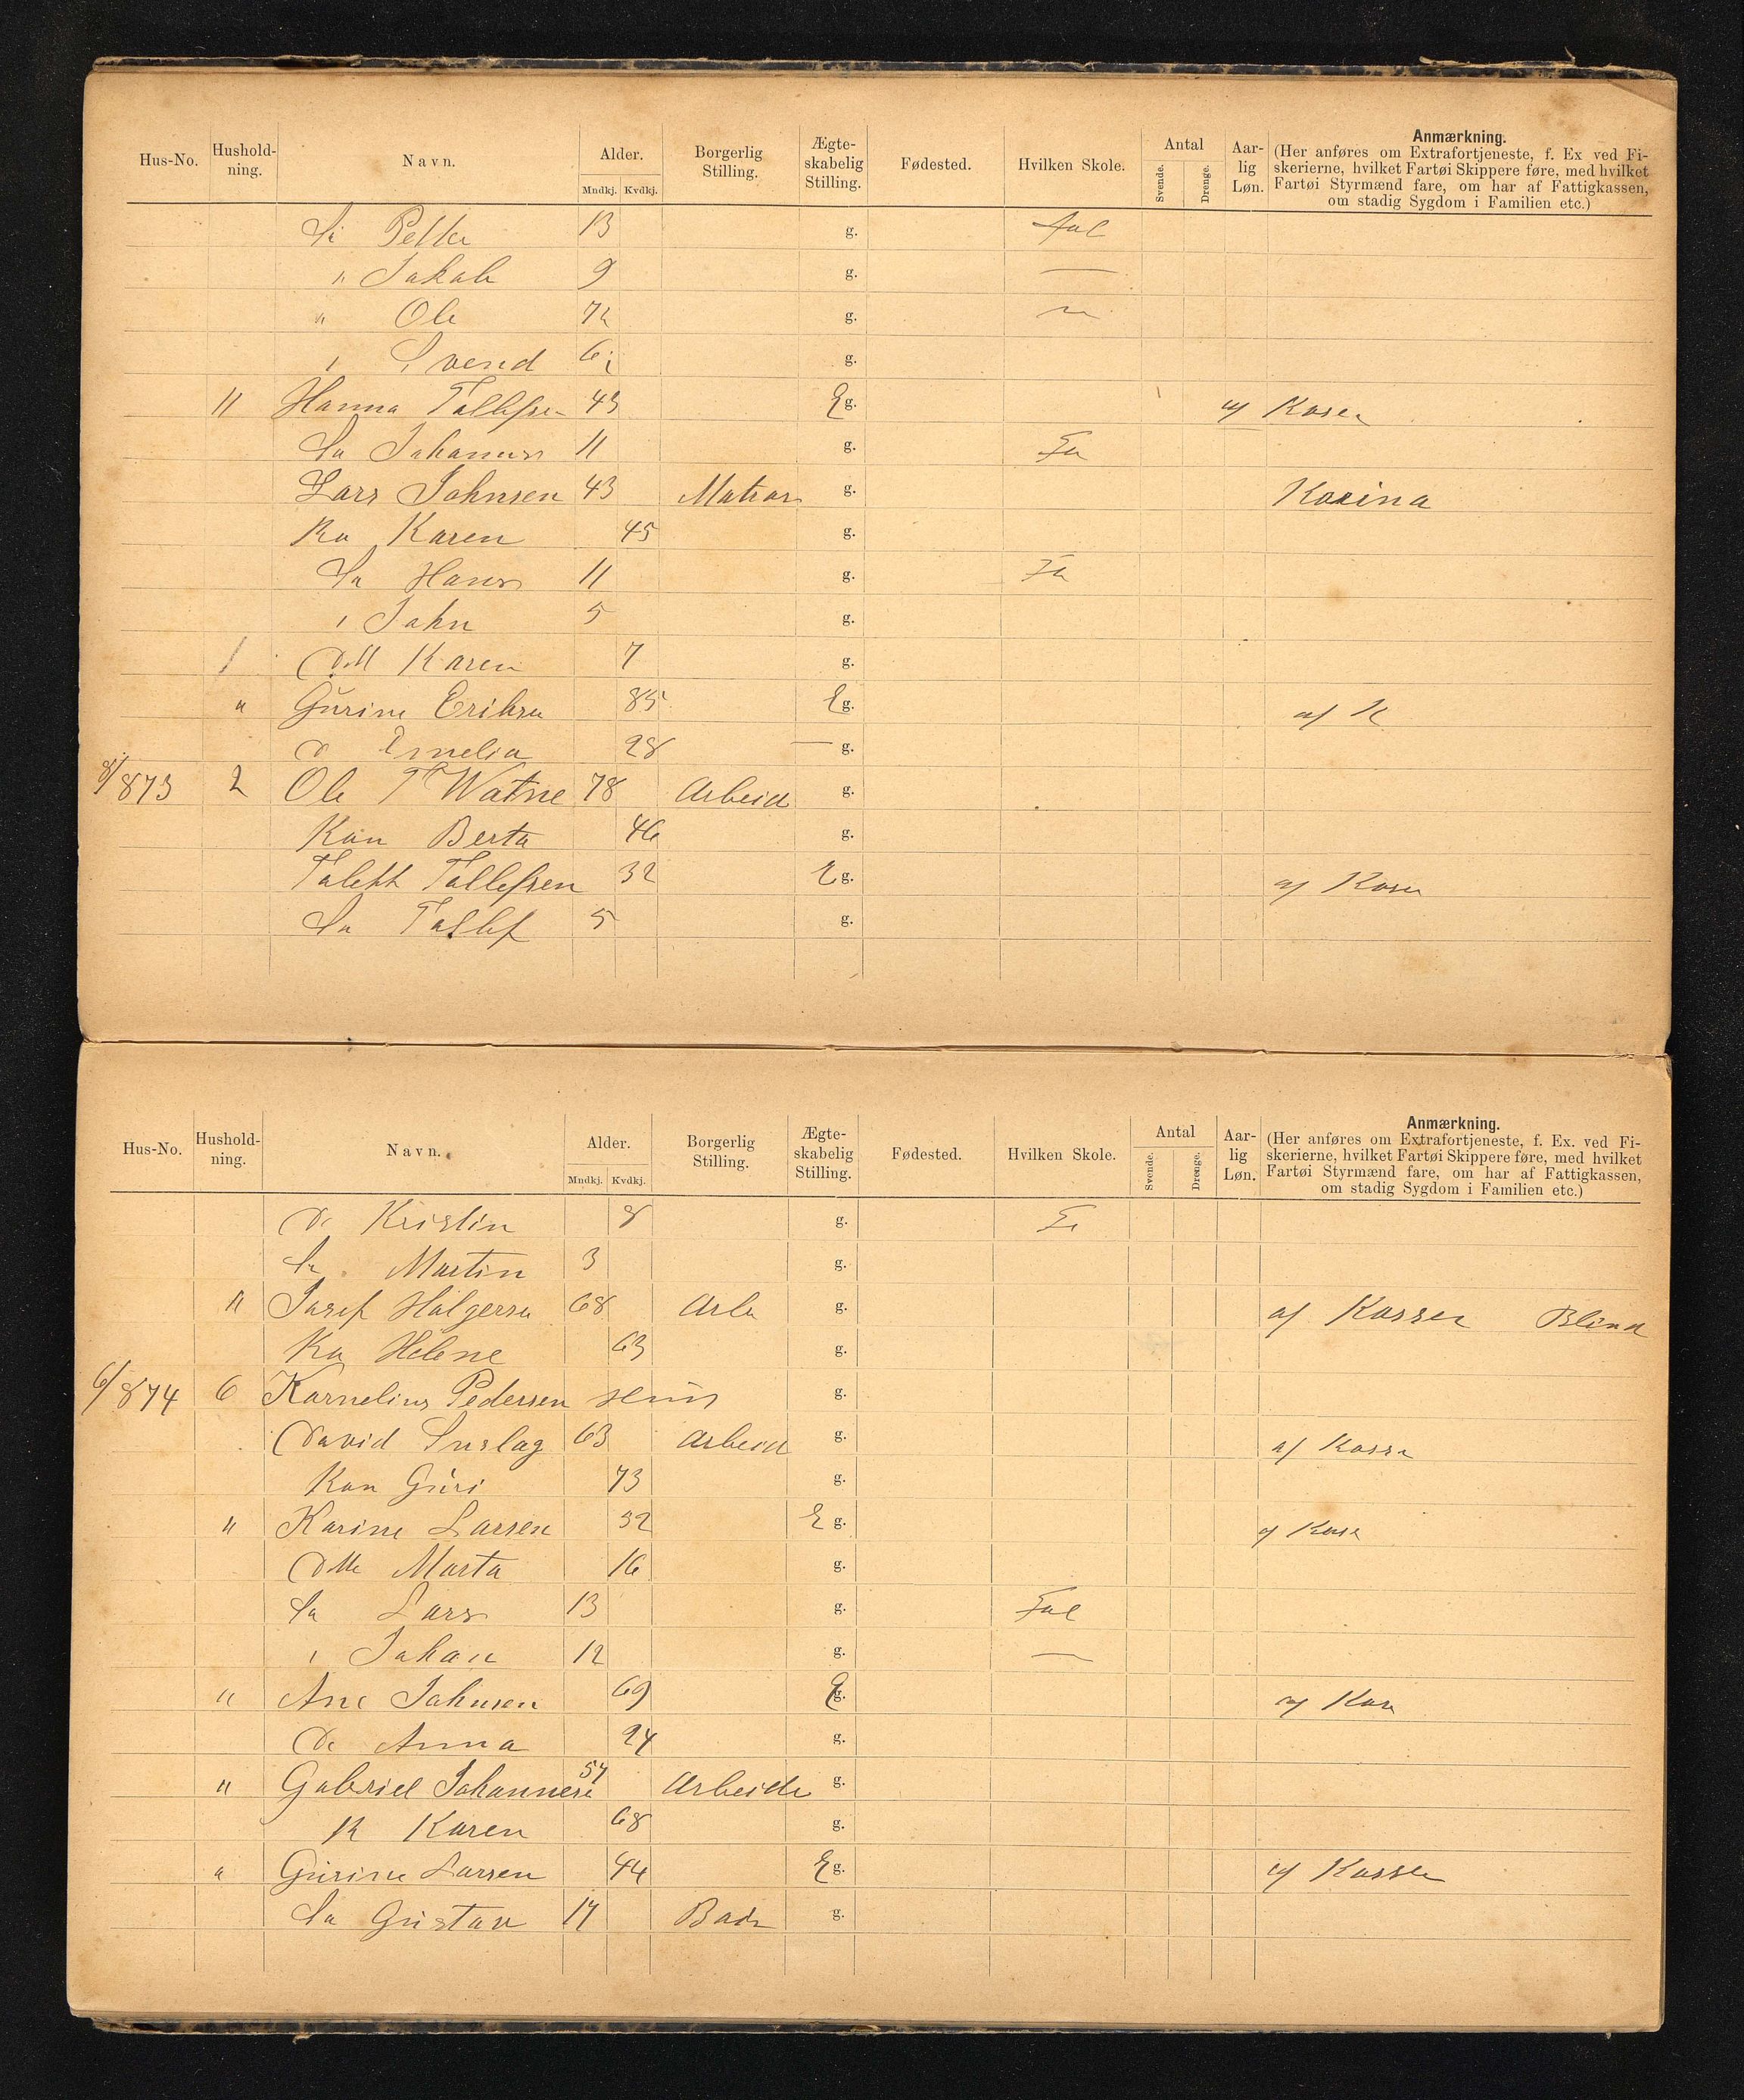 Hus-No. Hushold-ning. Navn. Alder. Mndkj. Kvdkj. Borgerlig Stilling. Ægte-skabelig Stilling. Fødested. Hvilken Skole. Antal Svende. Drenge. Aar-lig Løn. Anmærkning.
(Her anføres om Extrafortjeneste, f. Ex ved Fi-
skerierne, hvilket Fartøi Skippere føre, med hvilket
Fartøi Styrmænd fare, om har af Fattigkassen,
om stadig Sygdom i Familien etc.)
Sø Petter 13 g. Fol
" Jakob 9 g. —
" Ole 7½ g. "
" Svend 6½ g.
" Hanna Tollefsen 43 E g. af Kasen
Sø Johannes 11 g. Fo
Lars Johnsen 43 Matros g. Korina
Ko Karen 45 g.
Sø Hans 11 g. Fo
" John 5 g.
/ Dtt Karen 7 g.
" Gurine Eriksen 85 E g. af K
D Emelia 28 — g.
8/873 2 Ole T Watne 78 Arbeid g.
Kon Berta 46 g.
Tollefsen 32 E g. af Kasen
Sø Tollef 5 g.
Hus-No. Hushold-ning. Navn. Alder. Mndkj. Kvdkj. Borgerlig Stilling. Ægte-skabelig Stilling. Fødested. Hvilken Skole. Antal Svende. Drenge. Aar-lig Løn. Anmærkning.
(Her anføres om Extrafortjeneste, f. Ex. ved Fi-
skerierne, hvilket Fartøi Skippere føre, med hvilket
Fartøi Styrmænd fare, om har af Fattigkassen,
om stadig Sygdom i Familien etc.)
D Kristin 8 g. Fo
Sø Martin 3 g.
" Josef Holgersen 68 Arb g. af Kassen Blind
Ko Helene 63 g.
6/874 6 Kornelius Pedersen Huus g.
David 63 Arbeid g. af Kassen
Kon Guri 73 g.
" Karine Larsen 32 E g. af Kase
Dtt Marta 16 g.
Sø Lars 13 g. Fol
" Johan 12 g. —
" Ane Johnsen 69 E g. af Kas
D Anna 24 g.
" Gabriel Johannese 57 Arbeide g.
K Karen 68 g.
" Gurine Larsen 44 E g. af Kassen
Sø Gustav 17 g.